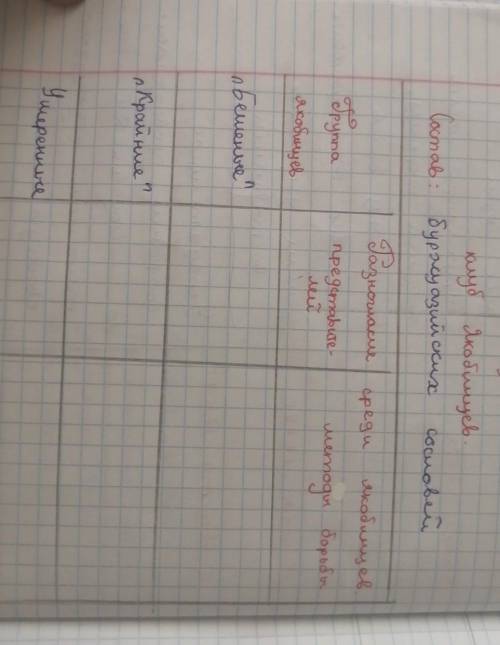 клуб якобинцев.
Состав: буржуазийских сословей
Разногласие среди якобинцев
Группа
якобинцев
представите-
лей
методы борьбы
"Бешеные"
"Крайние"
Умеренные